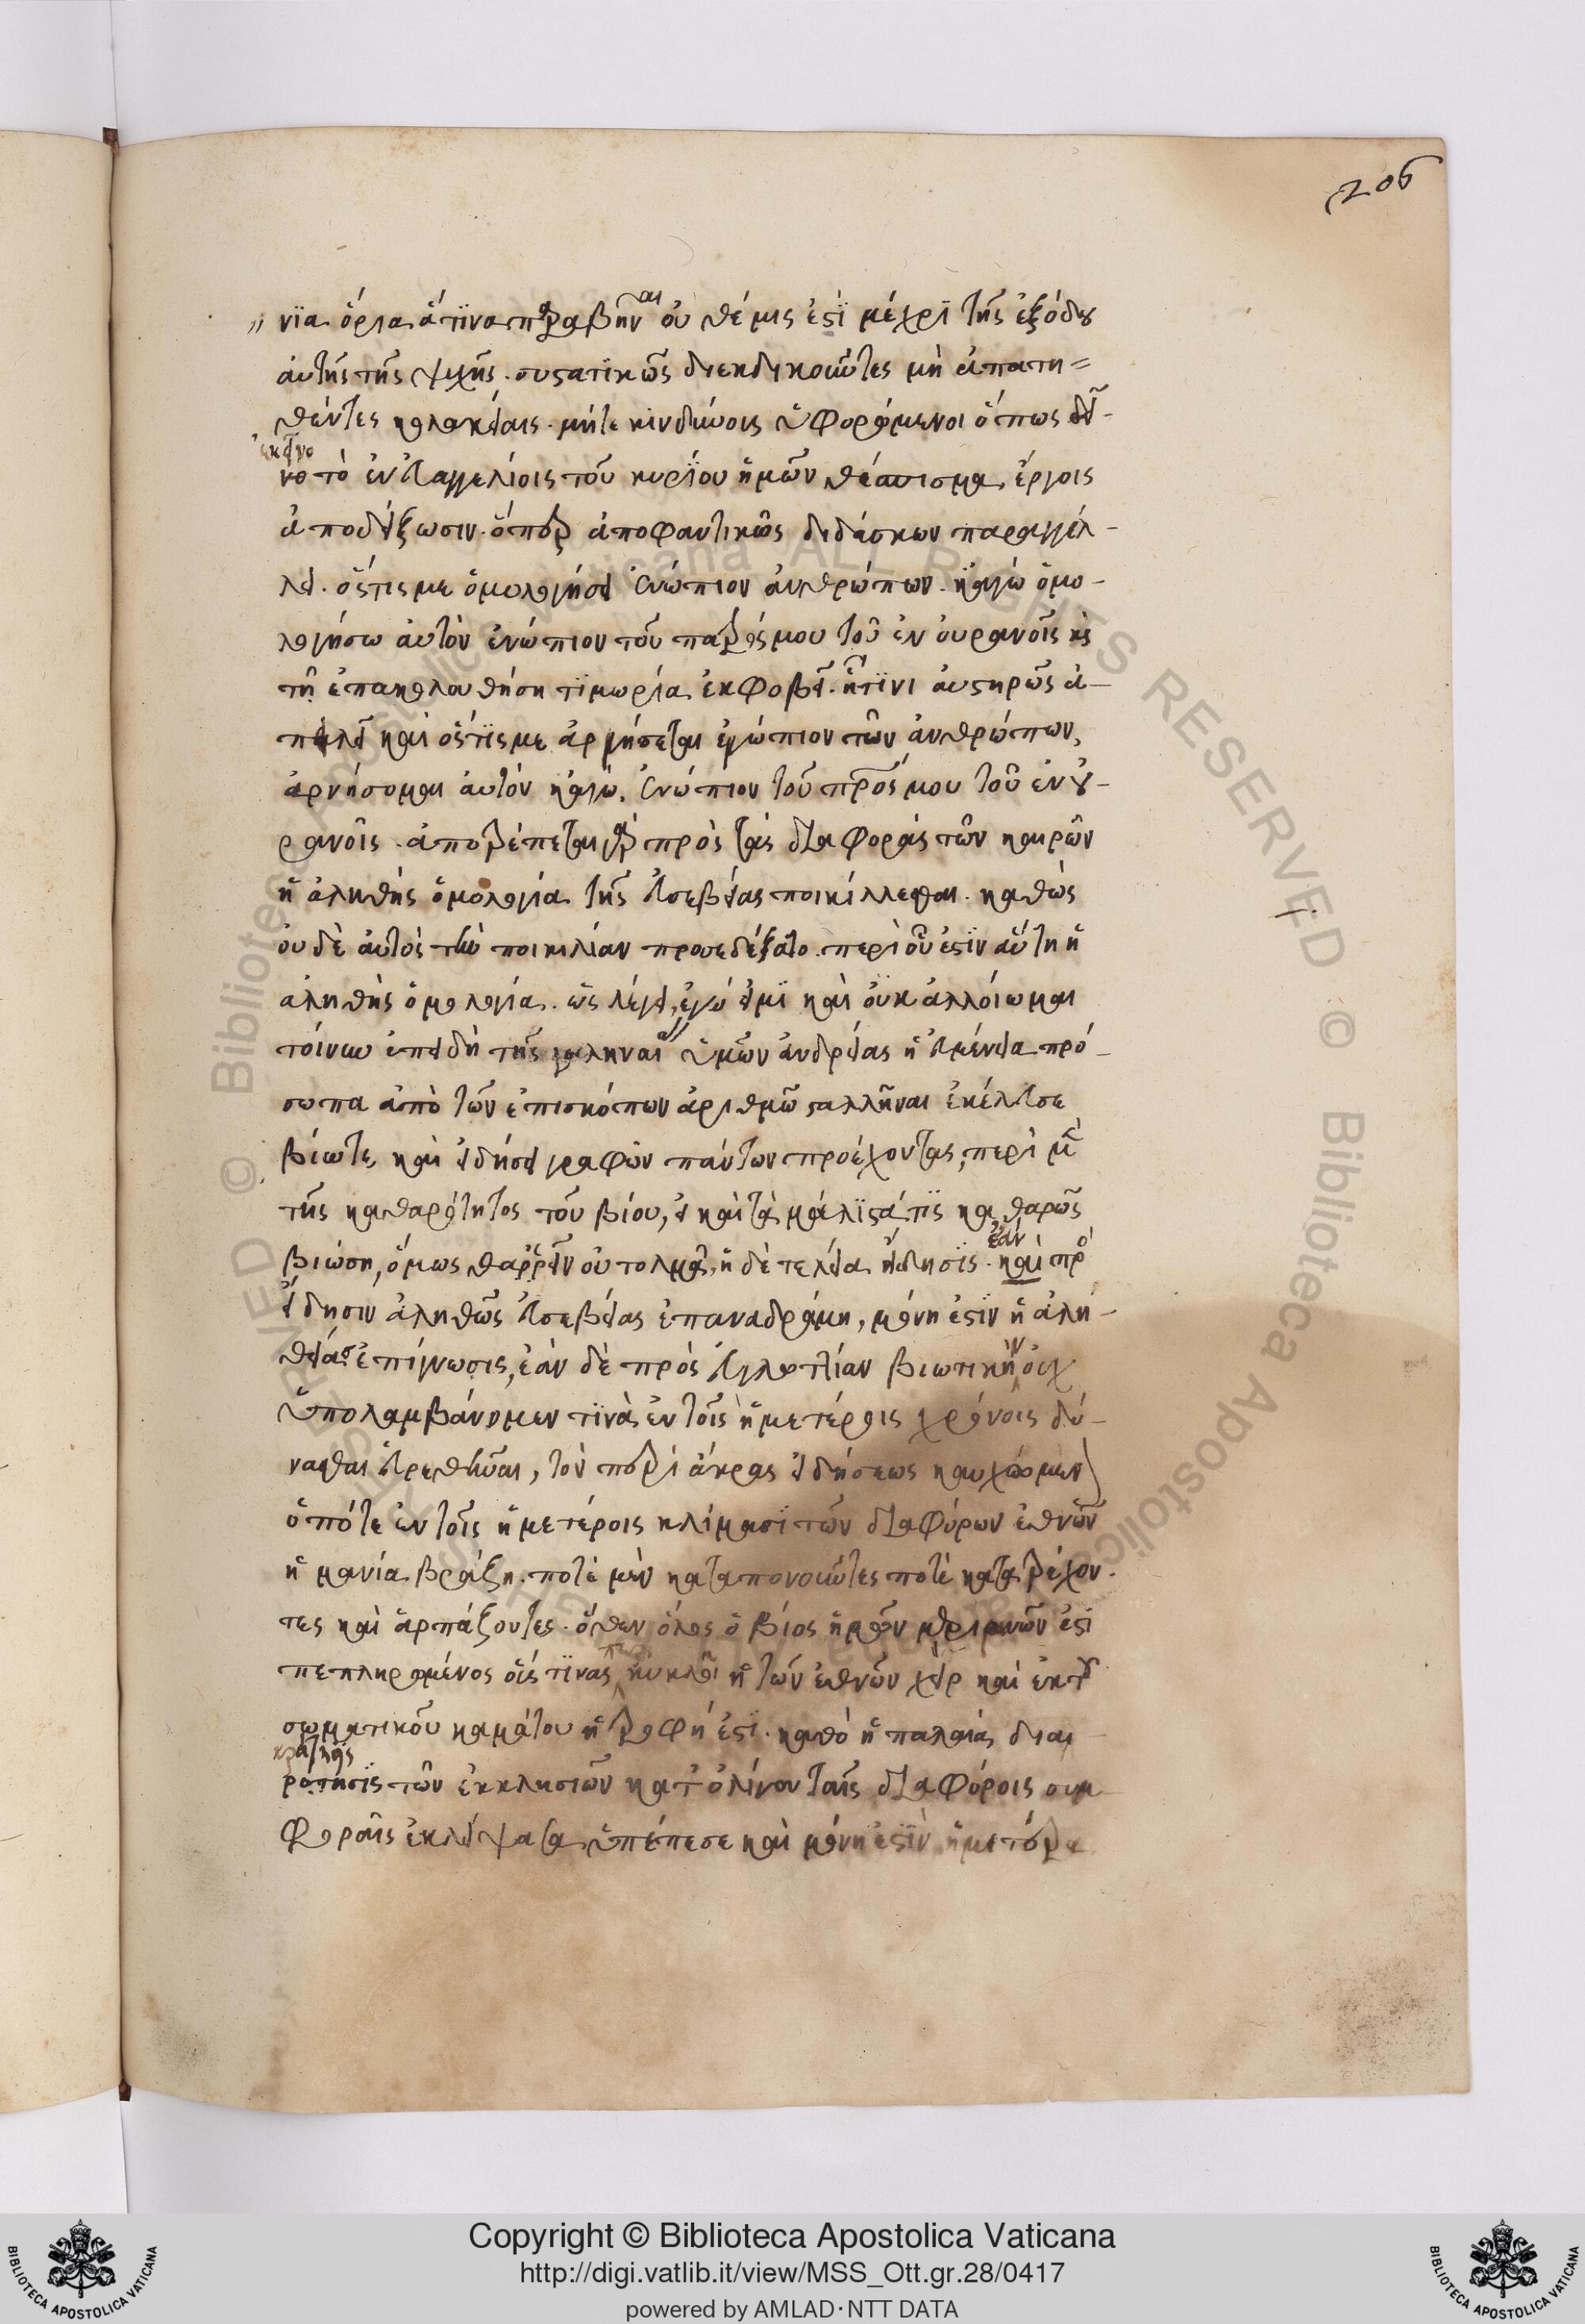 206
νϊα ὅρια ἅτϊνα παραβῆναι οὐ θέμις ἐστϊ μέχρϊ τῆς ἐξόδου
ἀυτῆς τῆς ψυχῆς. συστατϊκῶς διεκδικοῦντες μὴ ἀπατη=
θέντες κολακείαις. μήτε κινδύνοις ὑφορώμενοι ὅπως
ἐκεῖνο
νο τὸ ἐν εὐαγγελίοις τοῦ κυρϊου ἡμῶν θέσπισμα ἔργοις
ἀποδείξωσιν. ὅπερ ἀποφαντικῶς διδάσκων παραγγέλ-
λει. ὅστις με ὁμολογήσει ἐνώπιον ἀνθρώπων. κἀγὼ ὁμο-
λογήσω ἀυτὸν ἐνώπιον τοῦ πατρός μου τοῦ ἐν ὀυρανοῖς κὶ
τῇ ἐπακολουθήση τϊμωρία ἐκφοβεῖ. ᾗτϊνι ἀυστηρῶς ἀ-
πειλεῖ καὶ ὅστις με ἀρνήσεται ἐνώπιον τῶν ἀνθρώπων,
ἀρνήσομαι ἀυτὸν κἀγὼ ἐνώπιον τοῦ πρός μου τοῦ ἐν ου-
ρανοῖς. ἀποβλέπεται γὰρ πρὸς τὰς διαφορὰς τῶν καιρῶν
ἡ ἀληθὴς ὁμολογία τῆς εὐσεβείας ποικίλλεσθαι. καθὼς
ὀυδὲ ἀυτὸς τὴν ποικιλίαν προσεδέξατο. περὶ οὗ ἐστϊν ἅυτη ἡ
αληθὴς ὁμολογία. ὡς λέγει, ἐγώ εἰμϊ καὶ ὀυκ ἀλλοίωμαι
τοίνυν ἐπειδὴ τῆς ὑμῶν ἀνδρείας ἡ εὐμένεια πρό-
σωπα ἀπὸ τῶν ἐπισκόπων ἀριθμῶ σταλλῆναι ἐκέλευσε
βίωτε, καὶ εἰδήσει γραφῶν πάντων προέχοντας, περὶ μὲν
τῆς καθαρότητος τοῦ βίου, εἰ καὶ τὰ μάλϊστά τϊς καθαρῶς
ἐὰν
βιώση, ὅμως θαρρεῖν οὐ τολμᾶ, ἡ δὲ τελεία εἴδησϊς. καὶ πρὸς
εἴδησιν ἀληθῶς εὐσεβείας ἐπαναδράμη, μόνη ἐστϊν ἡ ἀλη-
θείας ἐπίγνωσις, ἐὰν δὲ πρὸς εὐγλωττίαν βιωτικὴν ὀυχ
ὑπολαμβάνομεν τϊνὰ ἐν τοῖς ἡμετέροις χρόνοις δύ-
νασθαι εὑρεθῆναι, τὸν περὶ ἄκρας εἰδήσεως καυχώμεν
ὁπότε ἐν τοῖς ἡμετέροις κλίμασϊ τῶν διαφόρων ἐθνῶν
ἡ μανία βράζη. ποτὲ μὲν καταπονοῦντες ποτὲ κατατρέχον-
τες καὶ ἁρπάζοντες. ὅθεν ὅλος ὁ βίος ἡμῶν μεριμνῶν ἐστϊ
πεπληρωμένος οἷς τϊνας κυκλοῖ ἡ τῶν ἐθνῶν χεὶρ καὶ ἐκ τοῦ
σωματικοῦ καμάτου ἡ τροφή ἐστϊ. καθὸ ἡ παλαιὰ διαι
κράτησις
ροτησϊς τῶν ἐκκλησιῶν κατ᾽ ὀλίγον ταῖς διαφόροις συμ
φοραῖς ἐκλείψασα ὑπέπεσε καὶ μόνη ἐστϊν ἡμετέρα